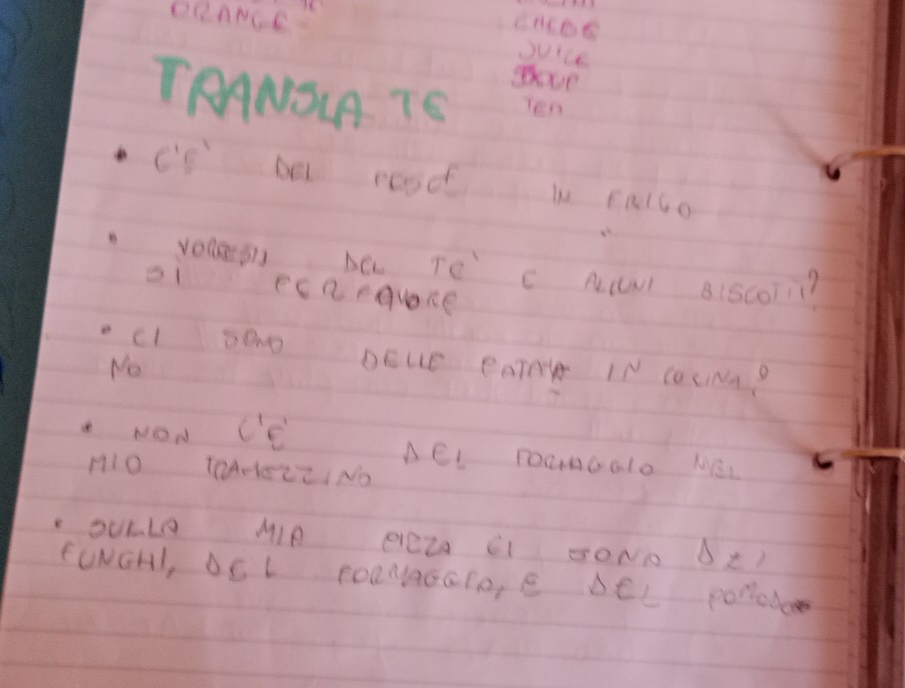 ORANGE
JUICE
SOUP
TEA
TRANSLATE
• C'E' DEL IN FRIGO
• VORRESTI DEL TE' E ALCUNI BISCOTTI?
SI PER FAVORE
• CI SONO DELLE PATATE IN CUCINA?
NO
• NON C'E' DEL FORMAGGIO NEL
MIO TRAMEZZINO
• SULLA MIA PIZZA CI SONO DEI
FUNGHI, DEL FORMAGGIO, E DEL